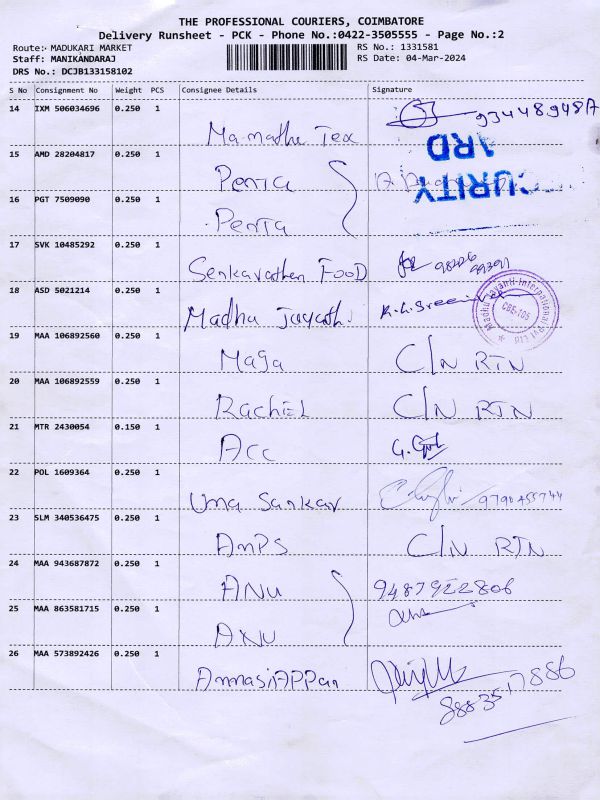 THE PROFESSIONAL COURIERS, COIMBATORE
Delivery Runsheet - PCK - Phone No.:0422-3505555 - Page No.:2
Route: MADUKARI MARKET
Staff: MANIKANDARAJ
DRS No.: DCJB133158102
RS No.: 1331581
RS Date: 04-Mar-2024
S No Consignment No Weight PCS Consignee Details Signature
14 IXM 506034696 0.250 1
Mamatha Tex 93448948A
15 AMD 28204817 0.250 1
Penta
SECURITY
16 PGT 7509090 0.250 1
Penta
17 SVK 10485292 0.250 1
Senkavathen FooD
18 ASD 5021214 0.250 1
Madhu Jayathi
Madhu Jayanti International Pvt
CBE-105
19 MAA 106892560 0.250 1
Maga C/N RTN
20 MAA 106892559 0.250 1
Rachel C/N RTN
21 MTR 2430054 0.150 1
Acc
22 POL 1609364 0.250 1
Uma Sankar 9790455744
23 SLM 340536475 0.250 1
AmPS C/N RTN
24 MAA 943687872 0.250 1
ANU 9487922806
25 MAA 863581715 0.250 1
ANU
26 MAA 573892426 0.250 1
AmmasiAPPan
8883517886